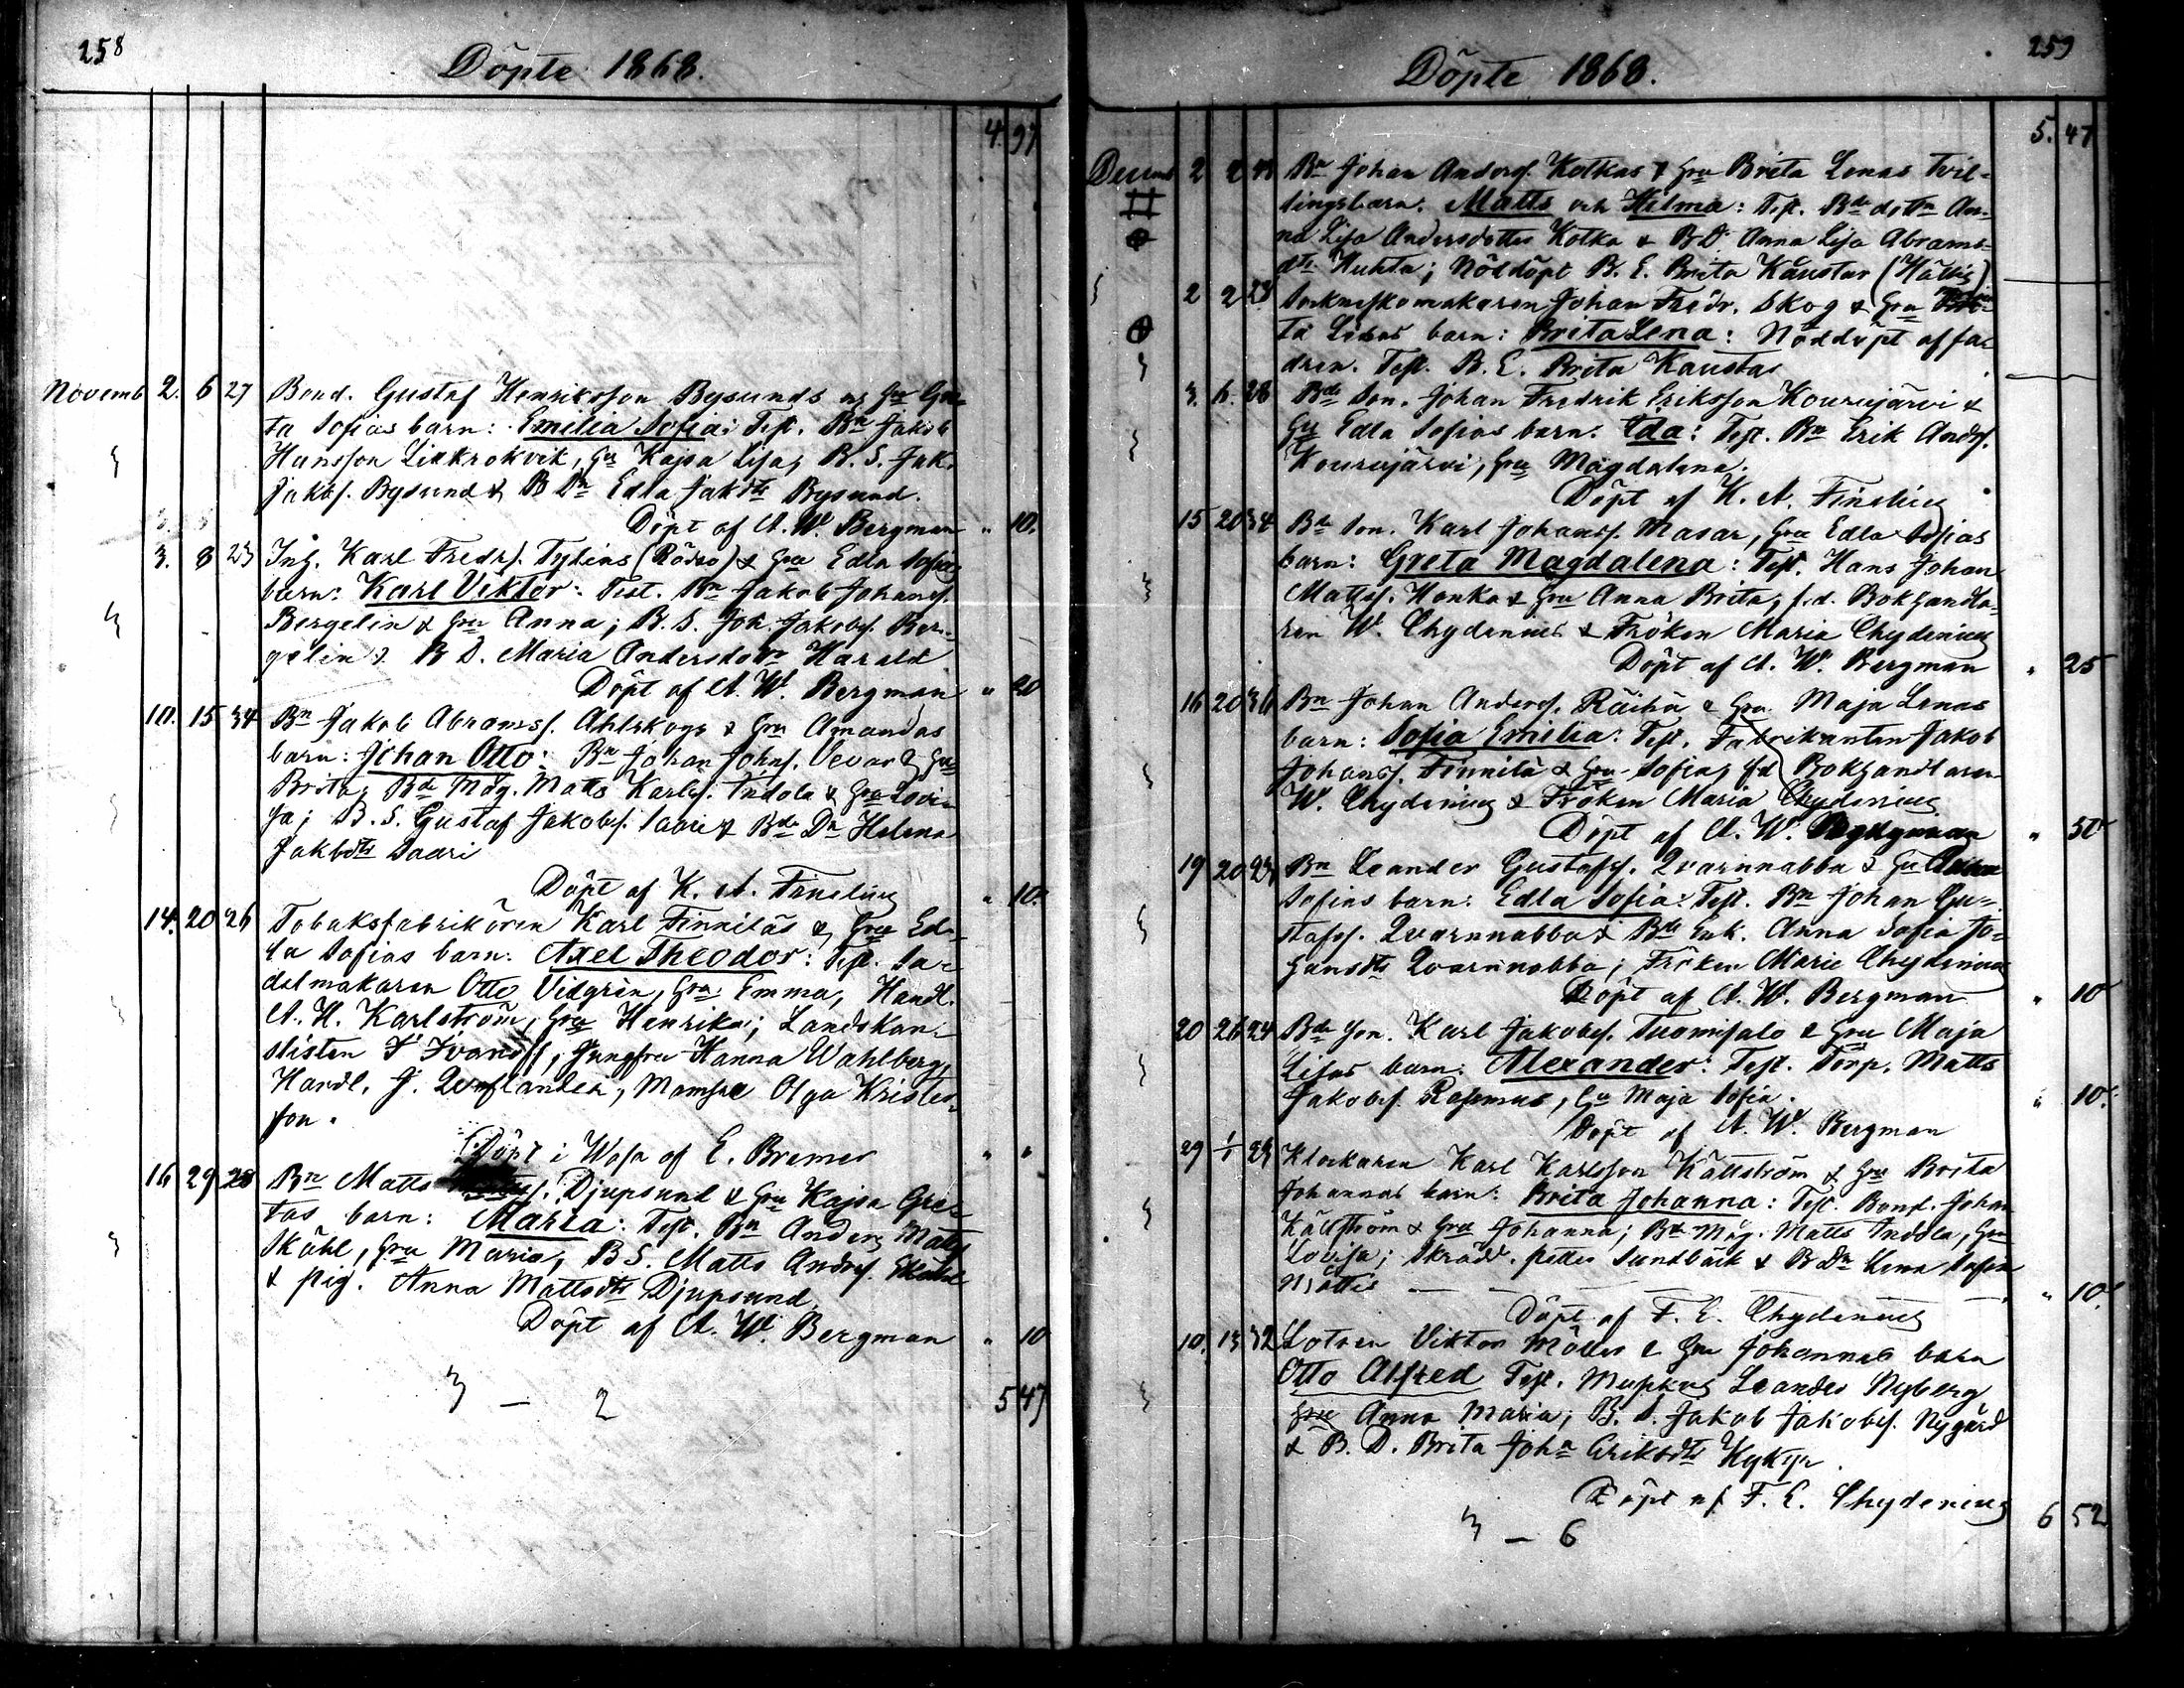 258
Döpte 1868.
4. 97
Novemb 2. 6 27 Bond. Gustaf Henriksson Bysunds o. Gru Gre-
ta Sofias barn: Emilia Sofia: Test. Bn Jakob
Hansson Linkrokvik, Gu Kajsa Lisa, B. S. Jak.
Jakobs. Bysund & B Dn Edla Jakdtr Bysund.
Döpt af A. W. Bergman " 10.
3. 8 23 Inh. Karl Fredrs. Tylins (Rödsö) & Gru Edla Sofias
barn: Karl Viktor: Test. Bn Jakob Johans.
Bergelin & Gru Anna; B. S. Joh. Jakobs. Ber-
gelin & B D. Maria Andersdotr Harald
Döpt af A. W. Bergman " 20
10. 15 34 Bn Jakob Abramss. Ahlskogs & Gru Amandas
barn: Johan Otto: Bn Johan Johns. Vevar & Gu
Brita; Bde Måg. Matts Karls. Indola & Gru Lovi-
sa; B. S. Gustaf Jakobs. Saari & Bde Dr Helena
Jakbdtr Saari
Döpt af K. A. Finelius " 10.
14. 20 26 Tobaksfabrikören Karl Finniläs & Gru Ed-
la Sofias barn: Axel Theodor: Test. Sa-
delmakaren Otto Vidgrén, Gru Emma, Handl.
A. H. Karlström, Gru Henrika; Landskan-
slisten F Ivanoff, Jungfru Hanna Wahlberg,
Handl. J. , Mamsell Olga Krister-
son.
Döpt i Wasa af E. Bremer " "
16 29 28 Bn Matts Djupsund & Gru Kajsa Gre-
tas barn: Maria: Test. Bn Anders Matts
Skåhl, Gru Maria, B S. Matts Andrs.
& pig. Anna Mattsdtr Djupsund.
Döpt af A. W. Bergman " 10
3 — 2 5 47
259
Döpte 1868.
5. 47
Decemb 2 2 Bn Johan Anders. Kotkas & Gru Brita Lenas Tvil-
lingsbarn: Matts och Hilma: Test. Bde dottn An-
na Lisa Andersdotter Kotka & B D. Anna Lisa Abrams-
dtr Huhta; Nöddöpt B. E. Brita Kaustar (Hättis)
2 2 23 Socknskomakaren Johan Fredr. Skog & Gru
ta Lisas barn: Brita Lena: Nöddöpt af fa-
dren. Test. B. E. Brita Kaustar
3. 6. 28 Bde Son. Johan Fredrik Eriksson Kourujärvi &
Gu Edla Sofias barn: Ida: Test. Bn Erik Andrs.
Kourujärvi, Gru Magdalena.
Döpt af K. A. Finelius
15 20 34 Bde Son. Karl Johans. Masar, Gru Edla Sofias
barn: Greta Magdalena: Test. Hans Johan
Mattss. Honka & Gru Anna Brita, f.d. Bokhandla-
ren W. Chydenius & Fröken Maria Chydenius
Döpt af A. W. Bergman " 25
16 20 36 Bn Johan Anders. Räihä & Gru Maja Lenas
barn: Sofia Emilia: Test. Fabrikanten Jakob
Johanss. Finnilä & Gru Sofia, f.d Bokhandlaren
W. Chydenius & Fröken Maria Chydenius
Döpt af A. W. Bergman " 50
19 20 Bn Leander Gustafs. Qvarnnabba & Gu
Sofias barn: Edla Sofia: Test. Bn Johan Gu-
stafs. Qvarnnabba & Bde Enk. Anna Sofia Jo-
hansdtr Qvarnnabba; Fröken Marie Chydenius
Döpt af A. W. Bergman " 10
20 26 24 Bde Son. Karl Jakobs. Tuomisalo & Gru Maja
Lisas barn: Alexander: Test. Torp. Matts
Jakobs. Rasmus, Gu Maja Sofia. " 10.
Döpt af A. W. Bergman
29 1/1 24 Klockaren Karl Karlsson Källström & Gru Brita
Johannas barn: Brita Johanna: Test. Bond. Johan
Källström & Gru Johanna; Bde Måg. Matts Indola, Gu
Lovisa; Skrädd. Petter Sundbäck & B Dn Lena Sofia
— — — " 10.
Döpt af F. E. Chydenius
10. 13 32 Lotsen Viktor Möller & Gru Johannas barn
Otto Alfred Test. Leander Nyberg
Gru Anna Maria; B. S. Jakob Jakobs. Nygård
& B. D. Brita Joha Eriksdtr Kykyr.
Döpt af F. E. Chydenius
3 — 6 6 52